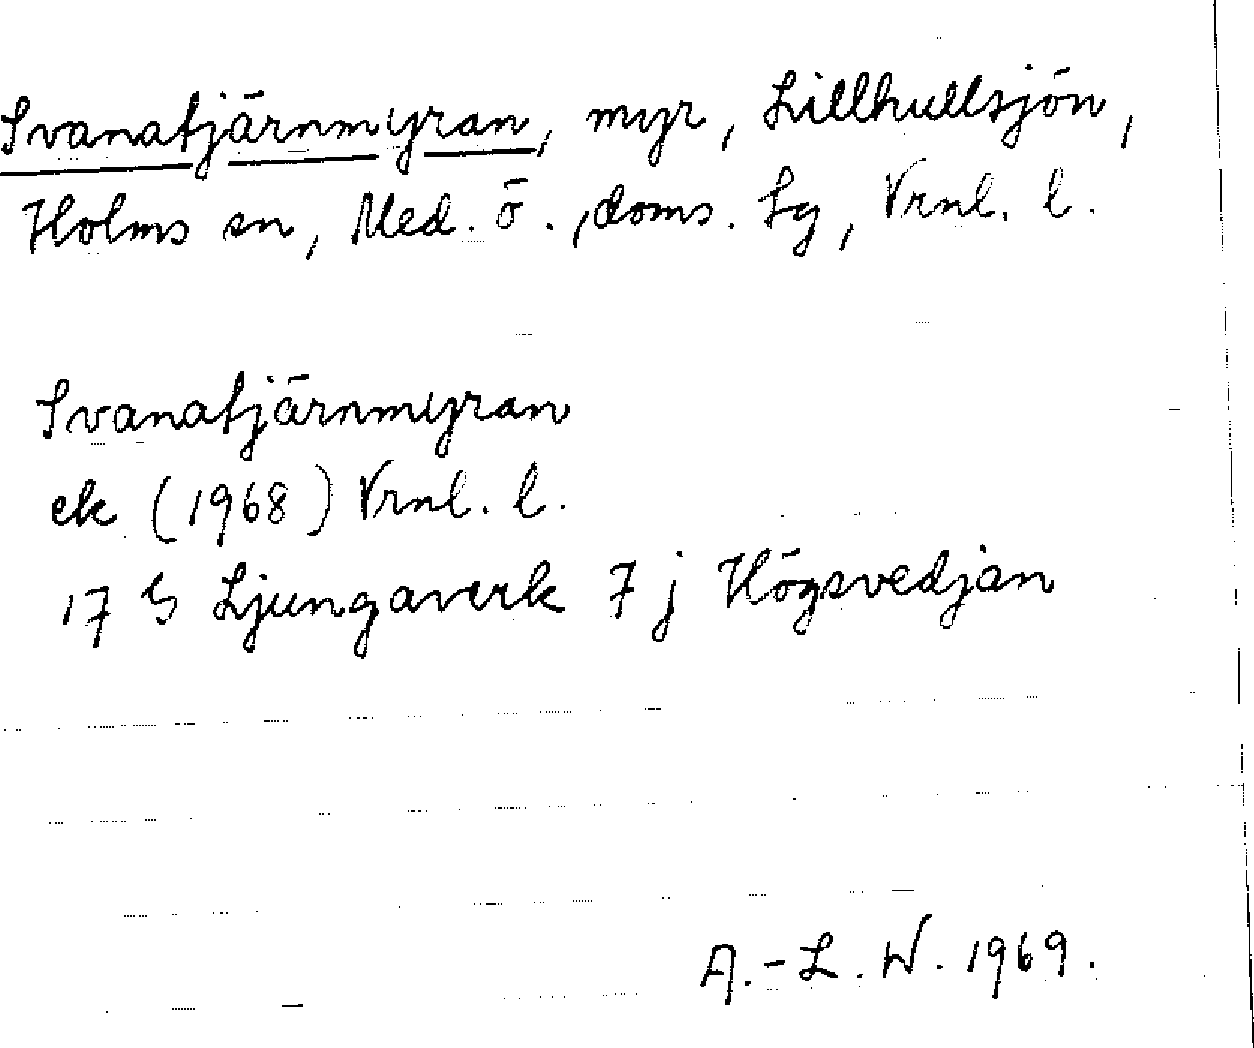 Svanatjärnmyran, myr, Lillhullsjön,
Holms sn, Med. ö., doms. Lg, Vrnl. l.
Svanatjärnmyran
ek (1968) Vrnl. l.
17 G Ljungaverk 7 j Högsvedjan
A.-L. W. 1969.